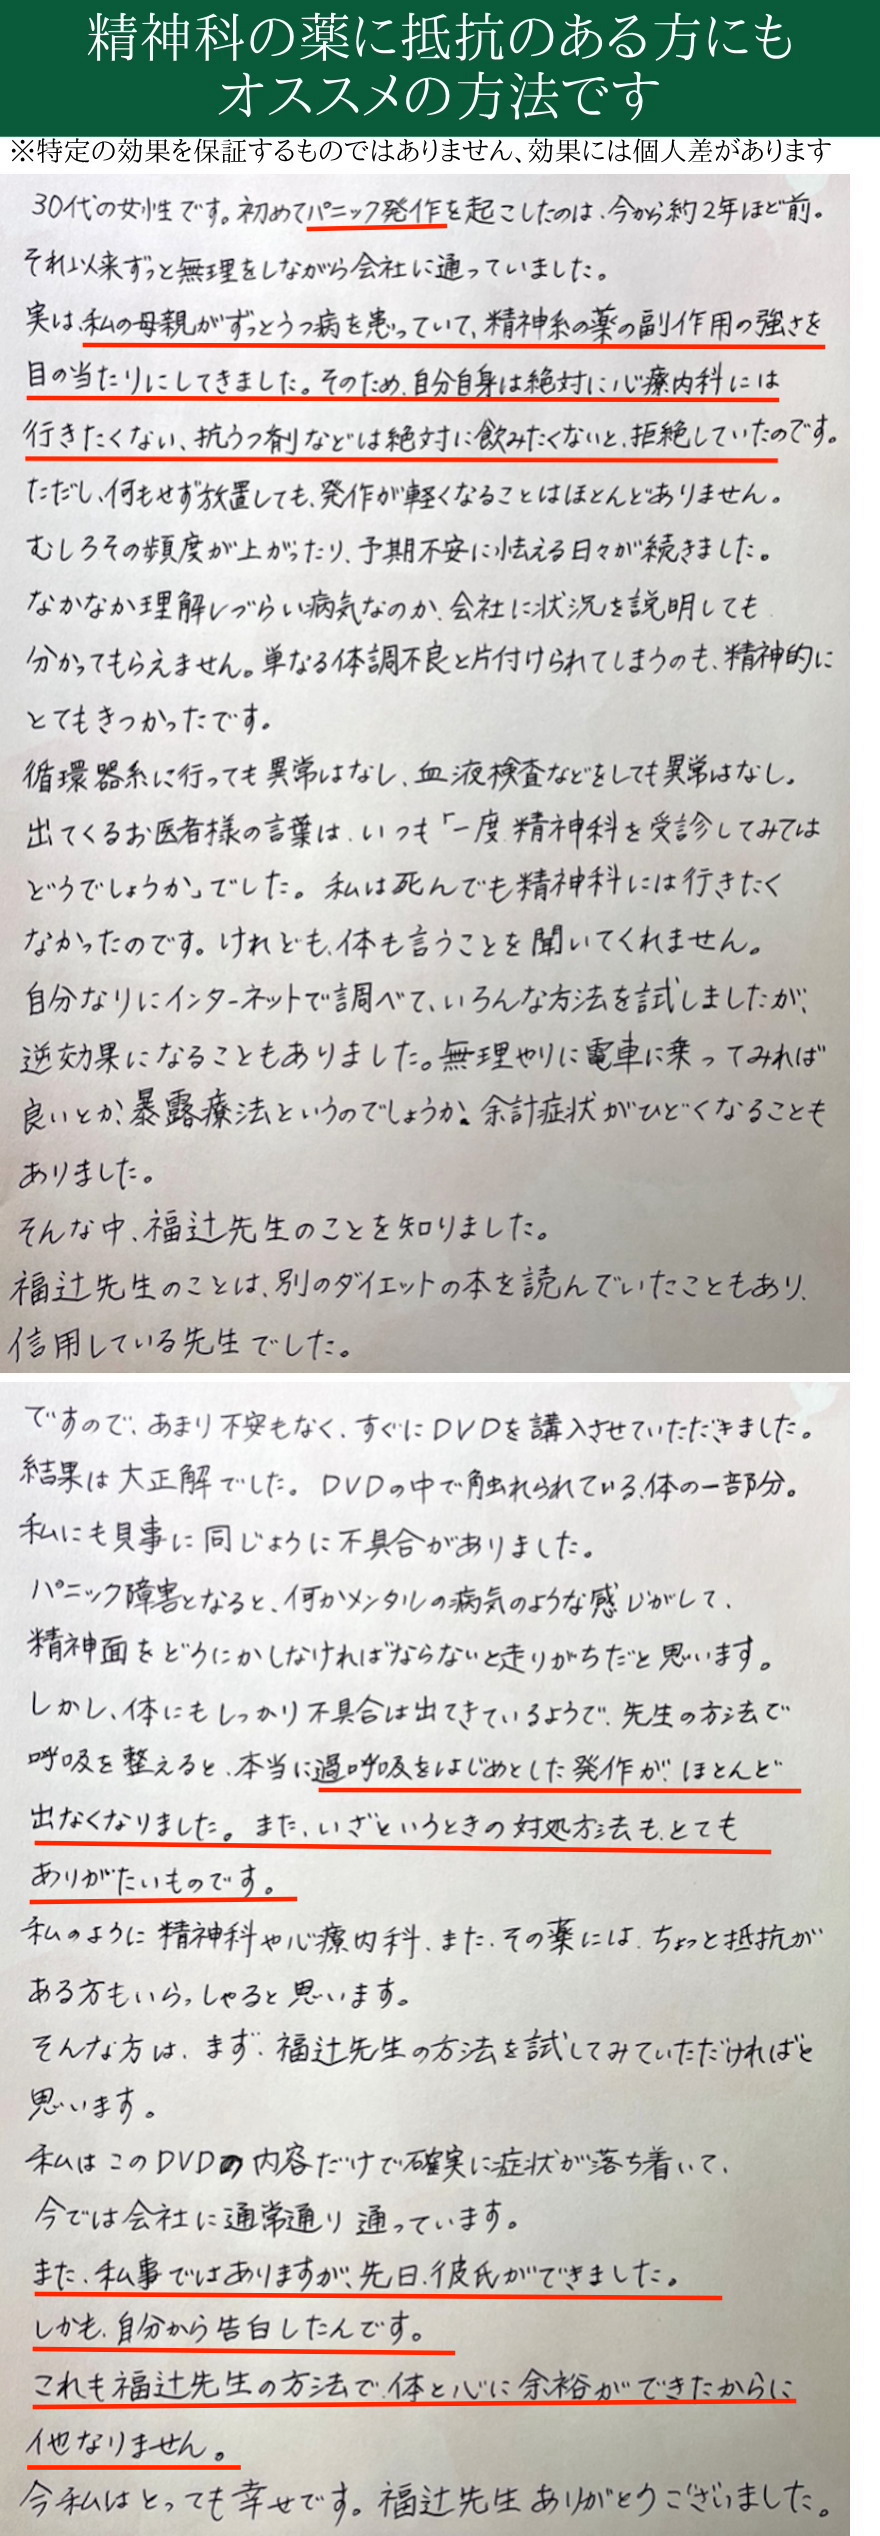 精神科の薬に抵抗のある方にも
オススメの方法です
※特定の効果を保証するものではありません、効果には個人差があります
30代の女性です。初めてパニック発作を起こしたのは、今から約2年ほど前。
それ以来ずっと無理をしながら会社に通っていました。
実は、私の母親がずっとうつ病を患っていて、精神系の薬の副作用の強さを
目の当たりにしてきました。そのため、自分自身は絶対に心療内科には
行きたくない、抗うつ剤などは絶対に飲みたくないと、拒絶していたのです。
ただし、何もせず放置しても、発作が軽くなることはほとんどありません。
むしろその頻度が上がったり、予期不安に怯える日々が続きました。
なかなか理解しづらい病気なのか、会社に状況を説明しても
分かってもらえません。単なる体調不良と片付けられてしまうのも、精神的に
とてもきつかったです。
循環器系に行っても異常はなし、血液検査などをしても異常はなし。
出てくるお医者様の言葉は、いつも「一度、精神科を受診してみては
どうでしょうか」でした。私は死んでも精神科には行きたく
なかったのです。けれども、体も言うことを聞いてくれません。
自分なりにインターネットで調べて、いろんな方法を試しましたが、
逆効果になることもありました。無理やりに電車に乗ってみれば
良いとか、暴露療法というのでしょうか。余計症状がひどくなることも
ありました。
そんな中、福辻先生のことを知りました。
福辻先生のことは、別のダイエットの本を読んでいたこともあり、
信用している先生でした。
ですので、あまり不安もなく、すぐにDVDを講入させていただきました。
結果は大正解でした。DVDの中で触れられている、体の一部分。
私にも見事に同じように不具合がありました。
パニック障害となると、何かメンタルの病気のような感じがして、
精神面をどうにかしなければならないと走りがちだと思います。
しかし、体にもしっかり不具合は出てきているようで、先生の方法で
呼吸を整えると、本当に過呼吸をはじめとした発作が、ほとんど
出なくなりました。また、いざというときの対処方法も、とても
ありがたいものです。
私のように精神科や心療内科、また、その薬には、ちょっと抵抗が
ある方もいらっしゃると思います。
そんな方は、まず、福辻先生の方法を試してみていただければと
思います。
私はこのDVDの内容だけで確実に症状が落ち着いて、
今では会社に通常通り通っています。
また、私事ではありますが、先日、彼氏ができました。
しかも、自分から告白したんです。
これも福辻先生の方法で、体と心に余裕ができたからに
他なりません。
今私はとっても幸せです。福辻先生ありがとうございました。